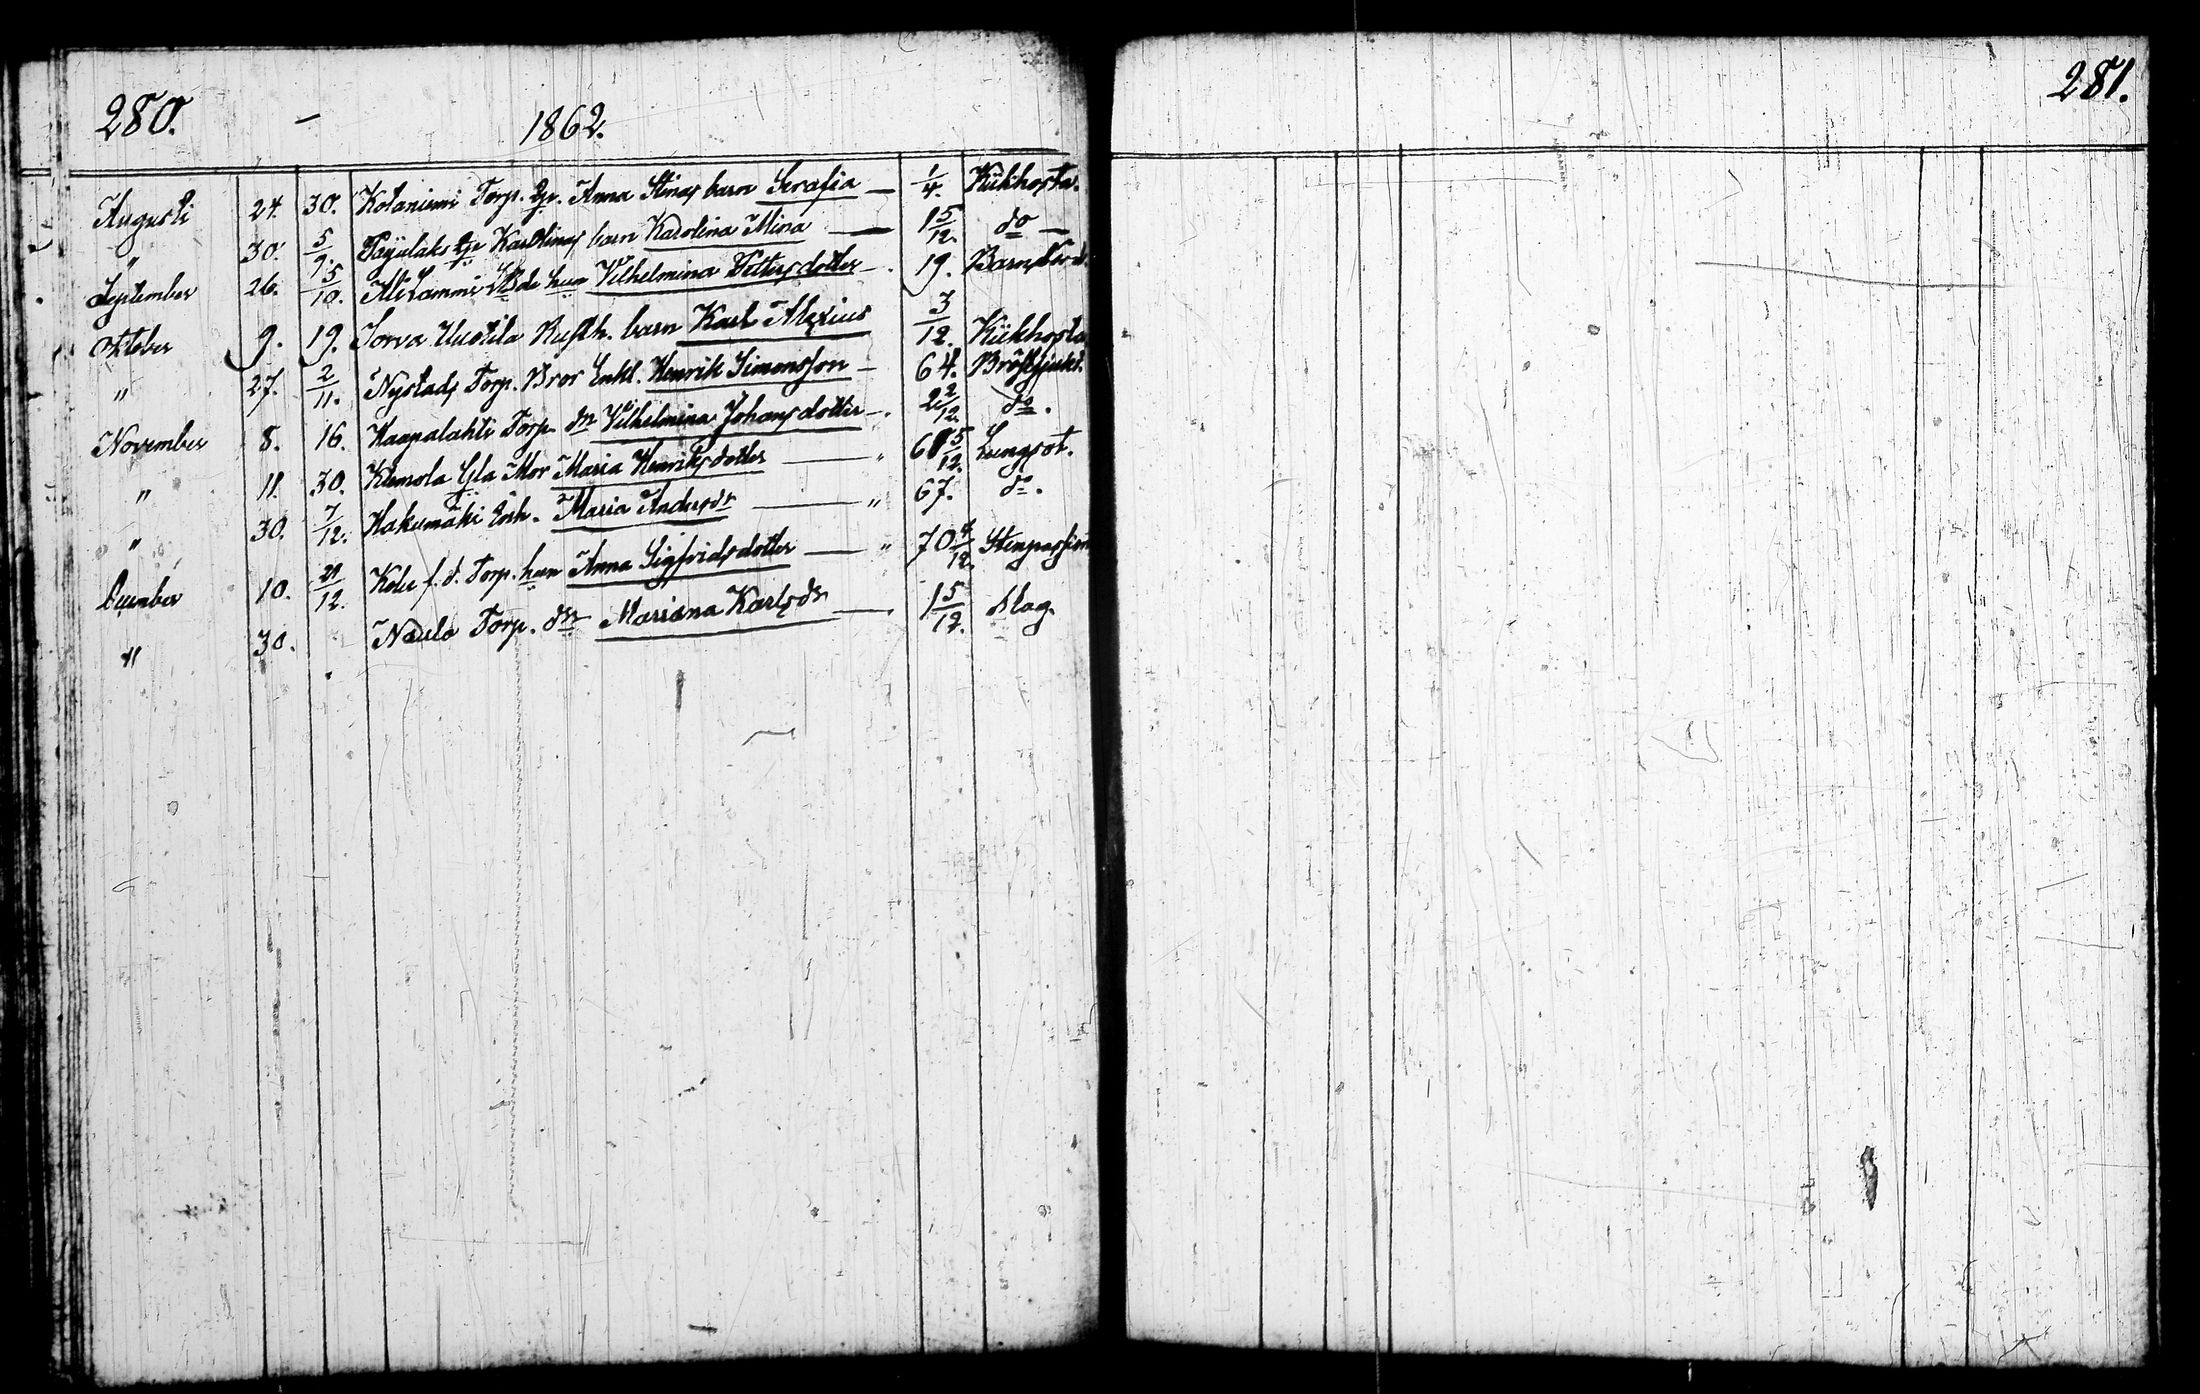 280. 281.
1862.
Augusti 24. 30. Kotaniemi Torp. Qv. Anna Stinas barn Serafia — 1/4. Kikhosta.
" 30. 5/9. Pajulaks Qv. Karolinas barn Karolina Mina — 1 5/12. do —
September 26. 5/10. Alitammi hun Vilhelmina Pettersdotter — 19. Barnsbörd.
Oktober 9. 19. Sorva Uustila Rusth. barn Karl Alexius 3/12. Kikhosta
" 27. 2/11. Nystads Torp. Bror Enkl. Henrik Simonsson — 64. Bröstsjukd.
November 8. 16. Haapalahti Torp. dr Vilhelmina Johansdotter —. 2 2/12. do.
" 11. 30. Klemola Gla Mor Maria Henriksdotter — " 61 5/12. Lungsot.
" 30. 7/12. Hakumäki Enk. Maria Andersdr — " 67. do.
December 10. 21/12. Kolu f. d. Torp. hun Anna Sigfridsdotter — " 70 4/12. Stenpassion
" 30. Naulo Torp. dr Mariana Karlsdr — 1 5/12. Slag